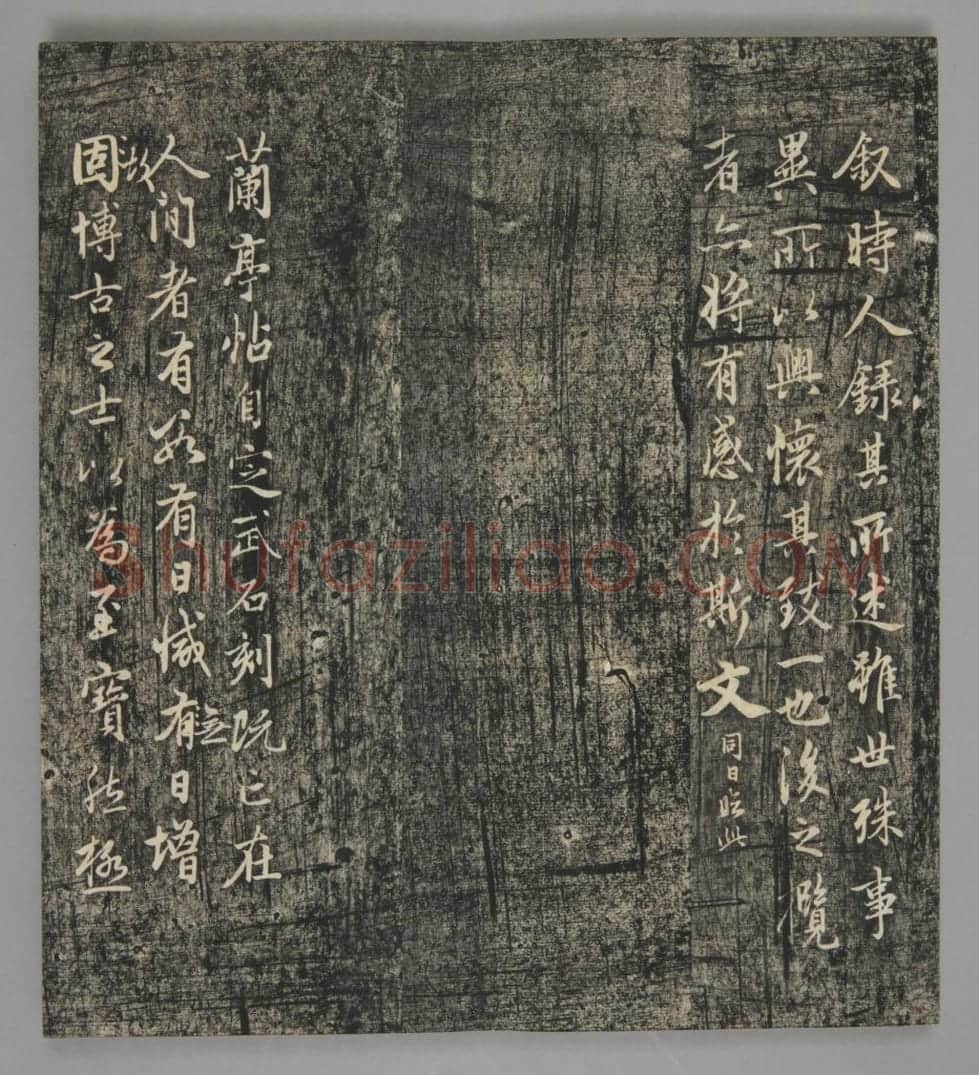 叙時人録其所述雖世殊事
異所以興懷其致一也後之攬
者亦将有感於斯文同日臨此
蘭亭帖自定武石刻既亡在
人間者有数有日减有無日增
故固博古之士以為至寶然極
Shufaziliao.COM